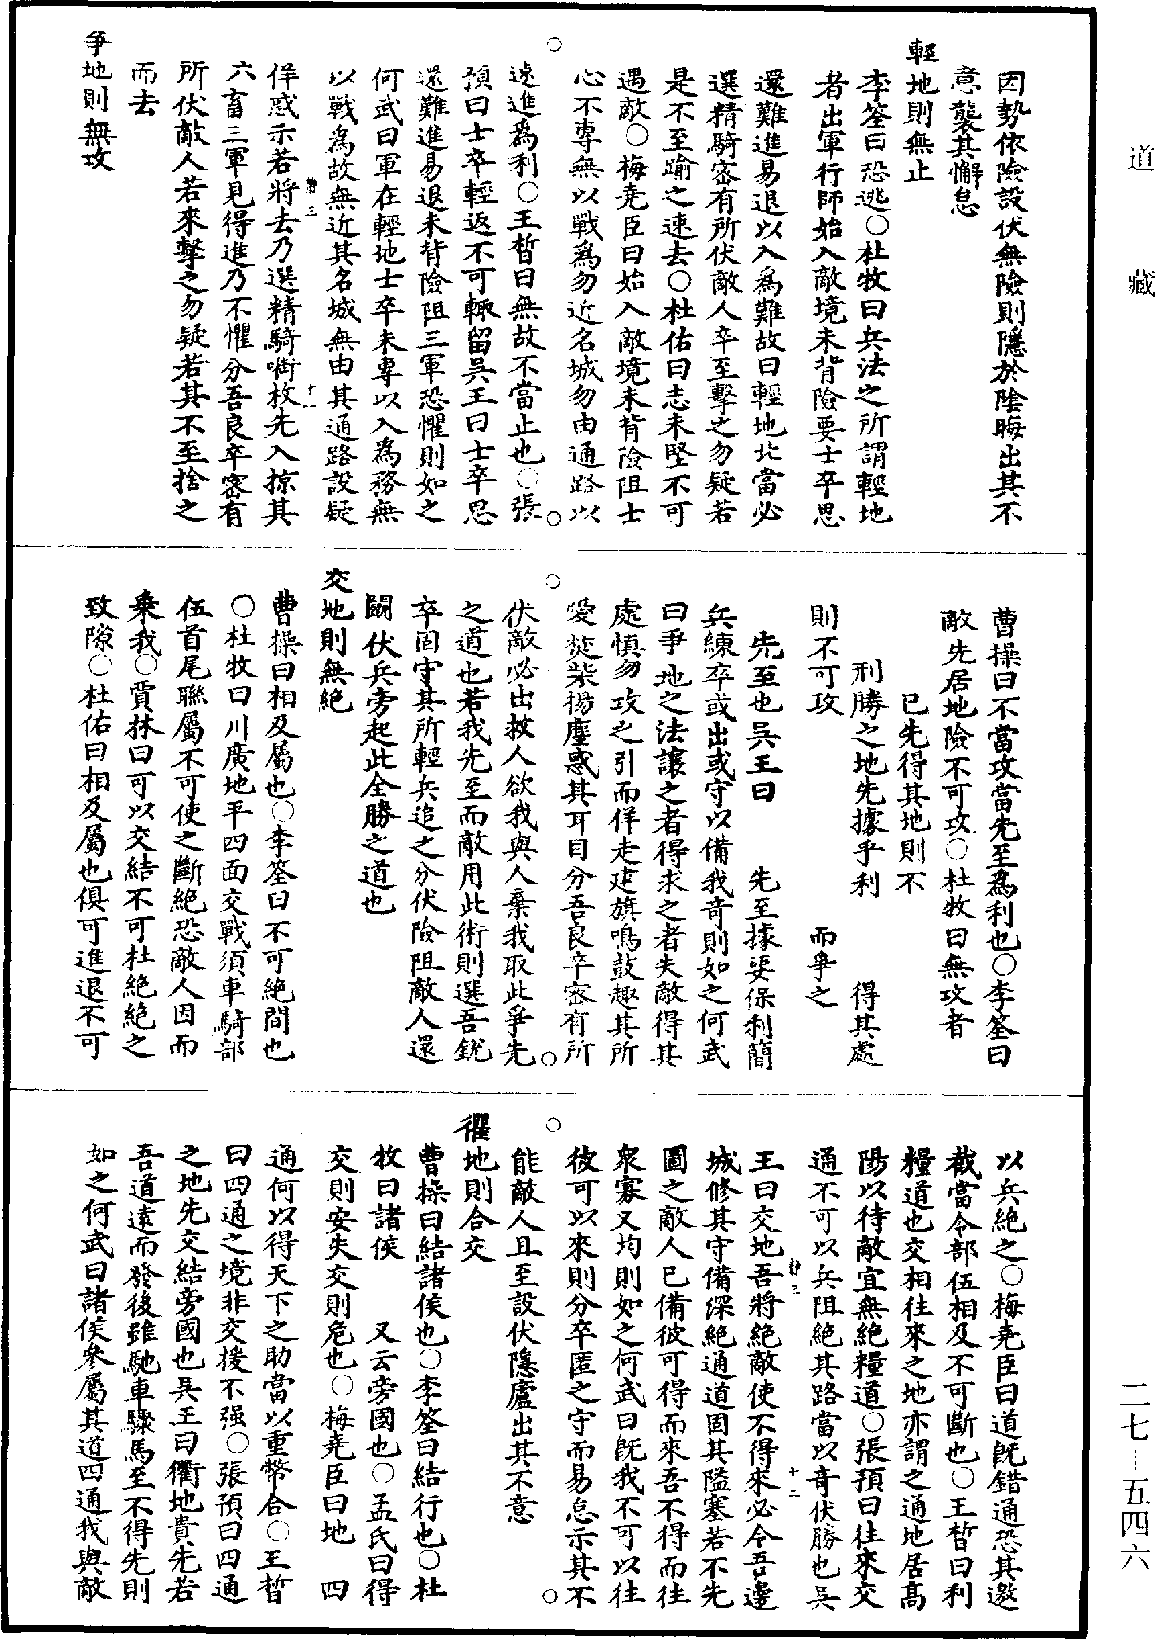 道藏
因勢依險設伏無險則隱於陰晦出其不
意襲其懈怠
輕地則無止
李筌曰恐逃○杜牧曰兵法之所謂輕地
者出軍行師始入敵境未背險要士卒思
還難進易退以入爲難故曰輕地北當必
選精騎密有所伏敵人卒至擊之勿疑若
是不至踰之速去○杜佑曰志未堅不可
遇敵○梅堯臣曰始入敵境未背險阻士
心不專無以戰爲勿近名城勿由通路以
速進爲利○王晳曰無故不當止也○張
預曰士卒輕返不可輒留吳王曰士卒思
還難進易退未背險阻三軍恐懼則如之
何武曰軍在輕地士卒未專以入爲務無
以戰爲故無近其名城無由其通路設疑
佯惑示若將去乃選精騎啣枚先入掠其
六畜三軍見得進乃不懼分吾良卒密有
所伏敵人若來擊之勿疑若其不至捨之
而去
爭地則無攻
曹操曰不當攻當先至爲利也○李筌曰
敵先居地險不可攻○杜牧曰無攻者
已先得其地則不
刑勝之地先據乎利 得其處
則不可攻 而爭之
先至也吳王曰 先至據要保利簡
兵練卒或出或守以備我奇則如之何武
曰爭地之法讓之者得求之者失敵得其
處慎勿攻之引而佯走建旗鳴鼓趣其所
愛旋柴揚塵惑其耳目分吾良卒密有所
伏敵必出救人欲我與人棄我取此爭先
之道也若我先至而敵用此術則選吾銳
卒固守其所輕兵追之分伏險阻敵人還
鬭伏兵旁起此全勝之道也
交地則無絕
曹操曰相及屬也○李筌曰不可絕間也
○杜牧曰川廣地平四面交戰須車騎部
伍首尾聯屬不可使之斷絕恐敵人因而
乘我○賈林曰可以交結不可杜絕絕之
致隙○杜佑曰相及屬也俱可進退不可
以兵絕之○梅堯臣曰道既錯通恐其邀
截當令部伍相及不可斷也○王晳曰利
糧道也交相往來之地亦謂之通地居高
陽以待敵宜無絕糧道○張預曰往來交
通不可以兵阻絕其路當以奇伏勝也吳
王曰交地吾將絕敵使不得來必令吾邊
城修其守備深絕通道固其隘塞若不先
圖之敵人已備彼可得而來吾不得而往
衆寡又均則如之何武曰既我不可以往
彼可以來則分卒匿之守而易怠示其不
能敵人且至設伏隱廬出其不意
衢地則合交
曹操曰結諸侯也○李筌曰結行也○杜
牧曰諸侯 又云旁國也○孟氏曰得
交則安失交則危也○梅堯臣曰地 四
通何以得天下之助當以重幣合○王晳
曰四通之境非交援不强○張預曰四通
之地先交結旁國也吳王曰衢地貴先若
吾道遠而發後雖馳車驟馬至不得先則
如之何武曰諸侯參屬其道四通我與敵
二七—五四六